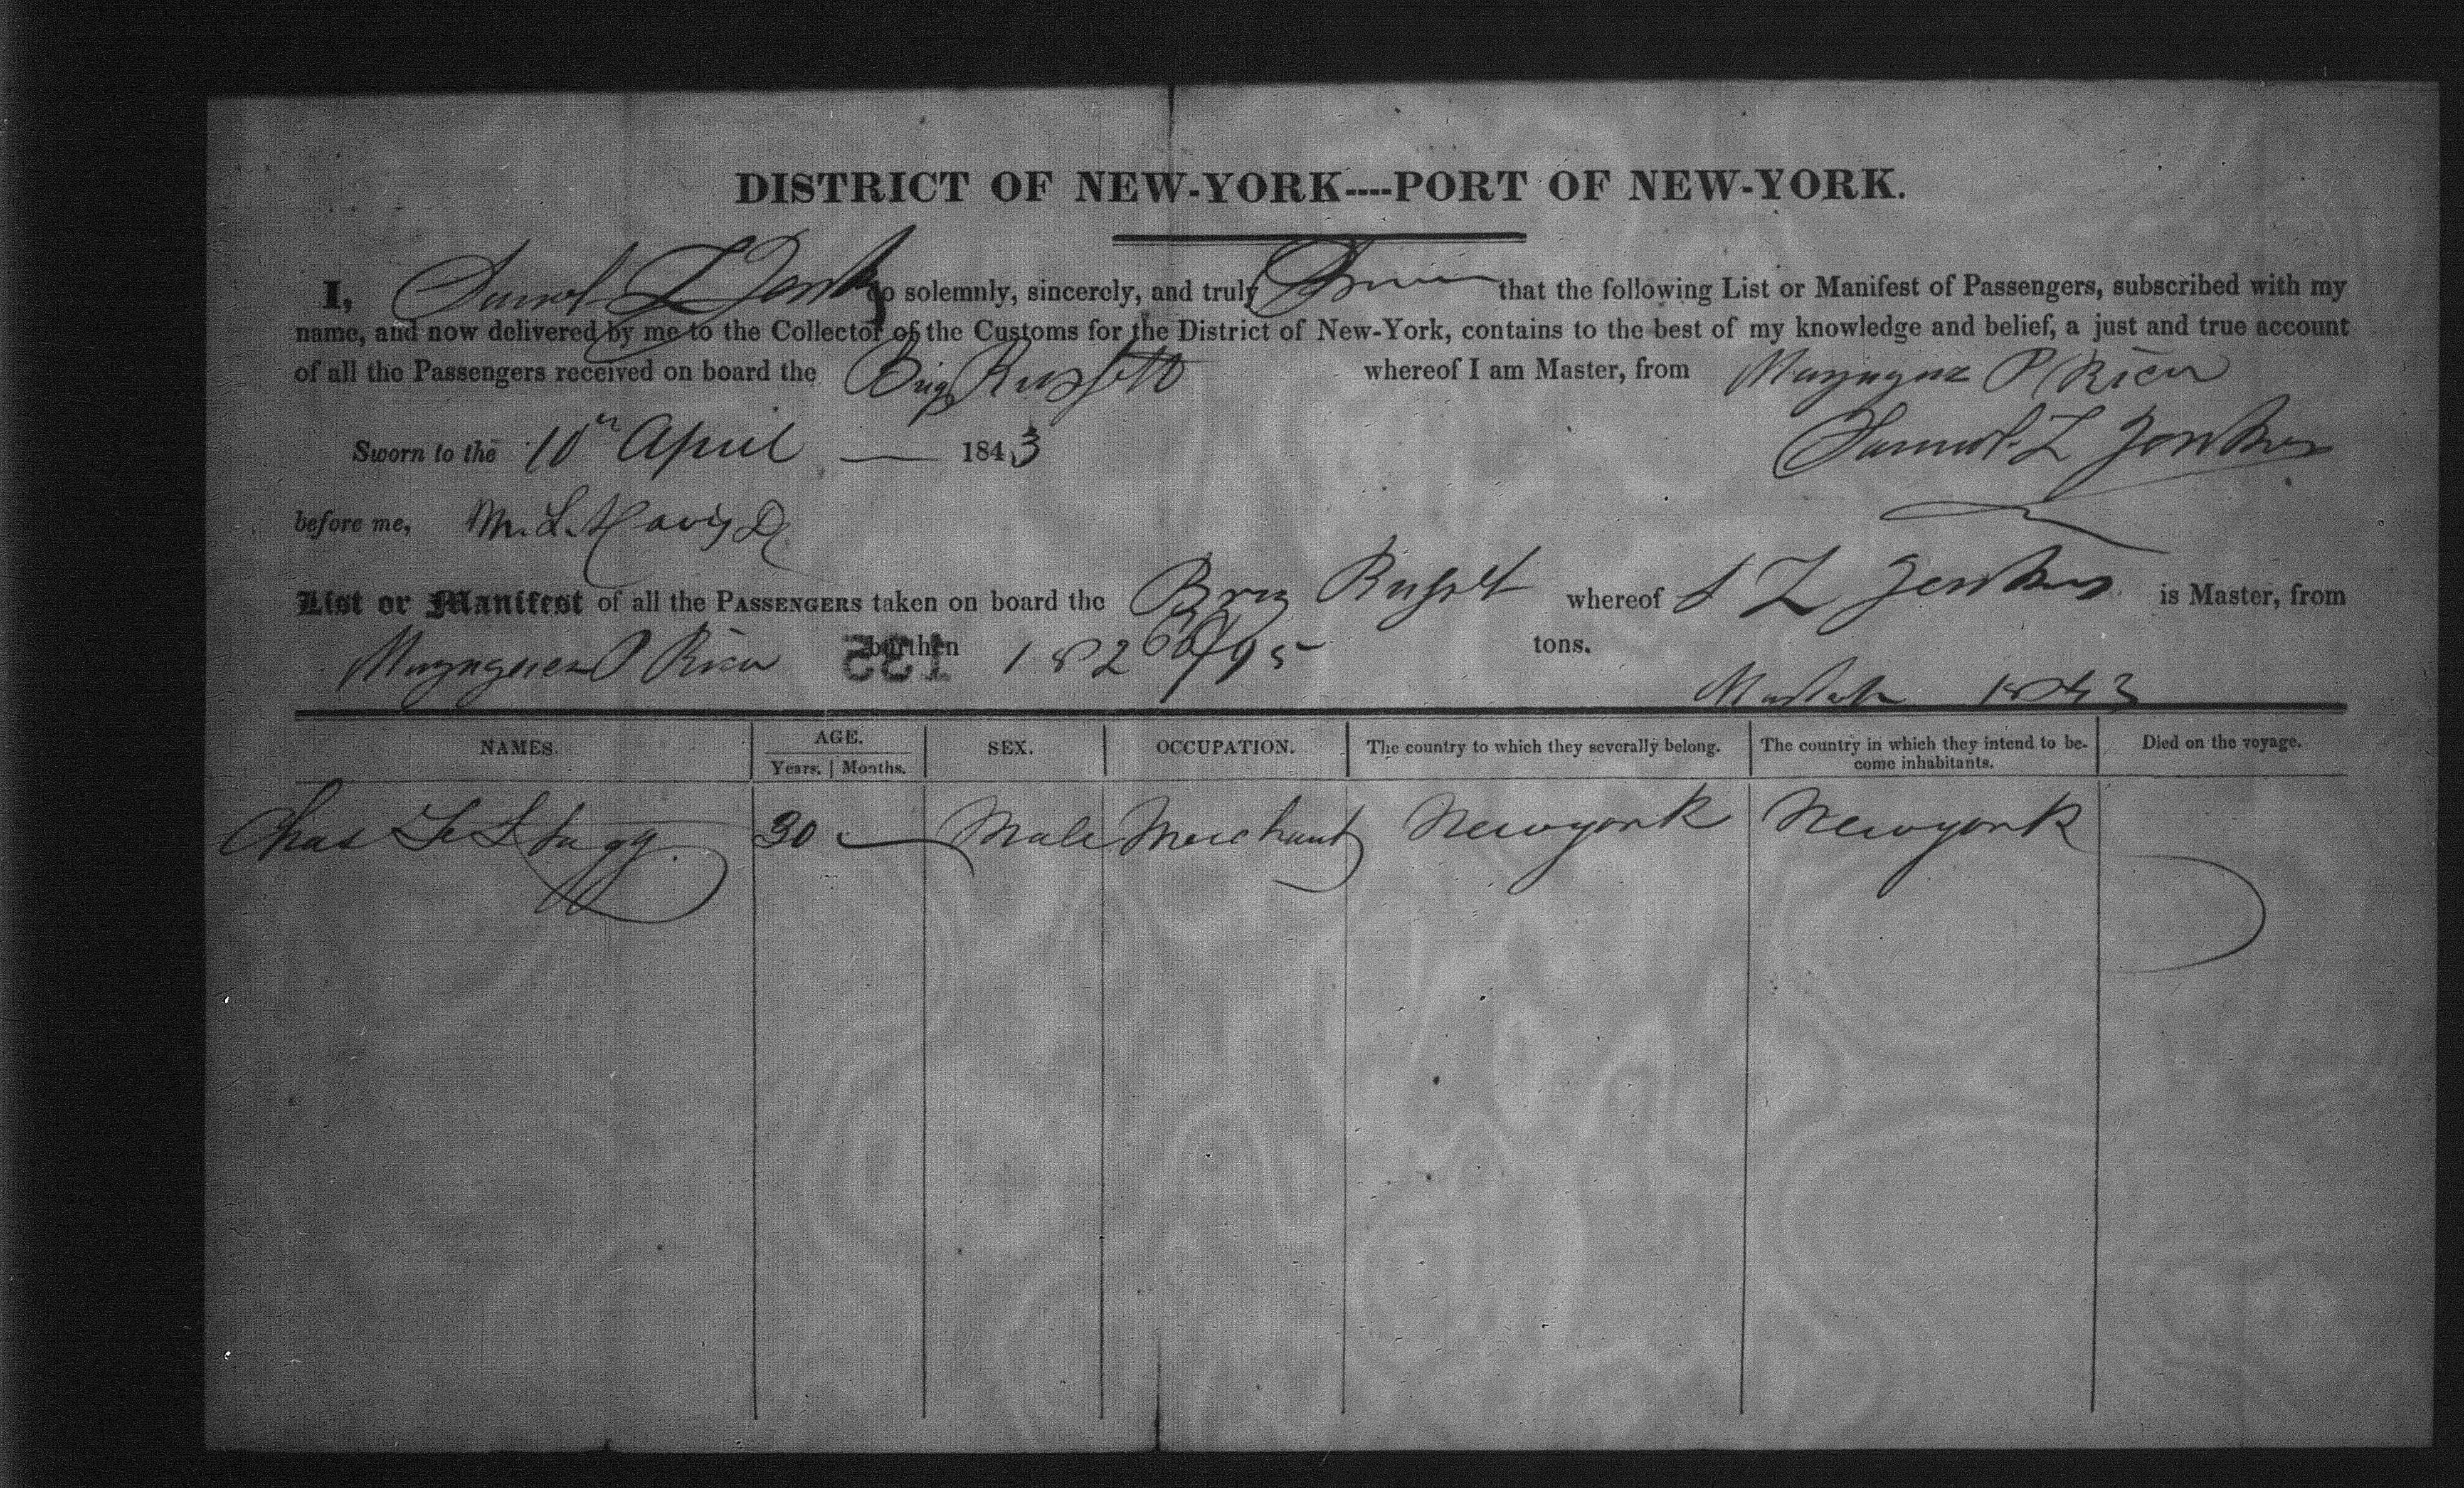 DISTRICT OF NEW-YORK----PORT OF NEW-YORK.
I, Samel. L Jenk do solemnly, sincerely, and truly Swear that the following List or Manifest of Passengers, subscribed with my
name, and now delivered by me to the Collector of the Customs for the District of New-York, contains to the best of my knowledge and belief, a just and true account
of all the Passengers received on board the Brig Russett whereof I am Master, from Mayaguez P Rico
Sworn to the 10th April — 1843 Samuel. L Jenkins
before me, M. L. Davis D
List or Manifest of all the PASSENGERS taken on board the Brig Russet whereof S L Jenkins is Master, from
Mayaguez P Rico burthen 182 60/95 tons.
135
1843
NAMES. AGE. SEX. OCCUPATION. The country to which they severally belong. The country in which they intend to be- Died on the voyage.
Years. | Months. come inhabitants.
Chas Stagg 30 — Male Merchant Newyork Newyork